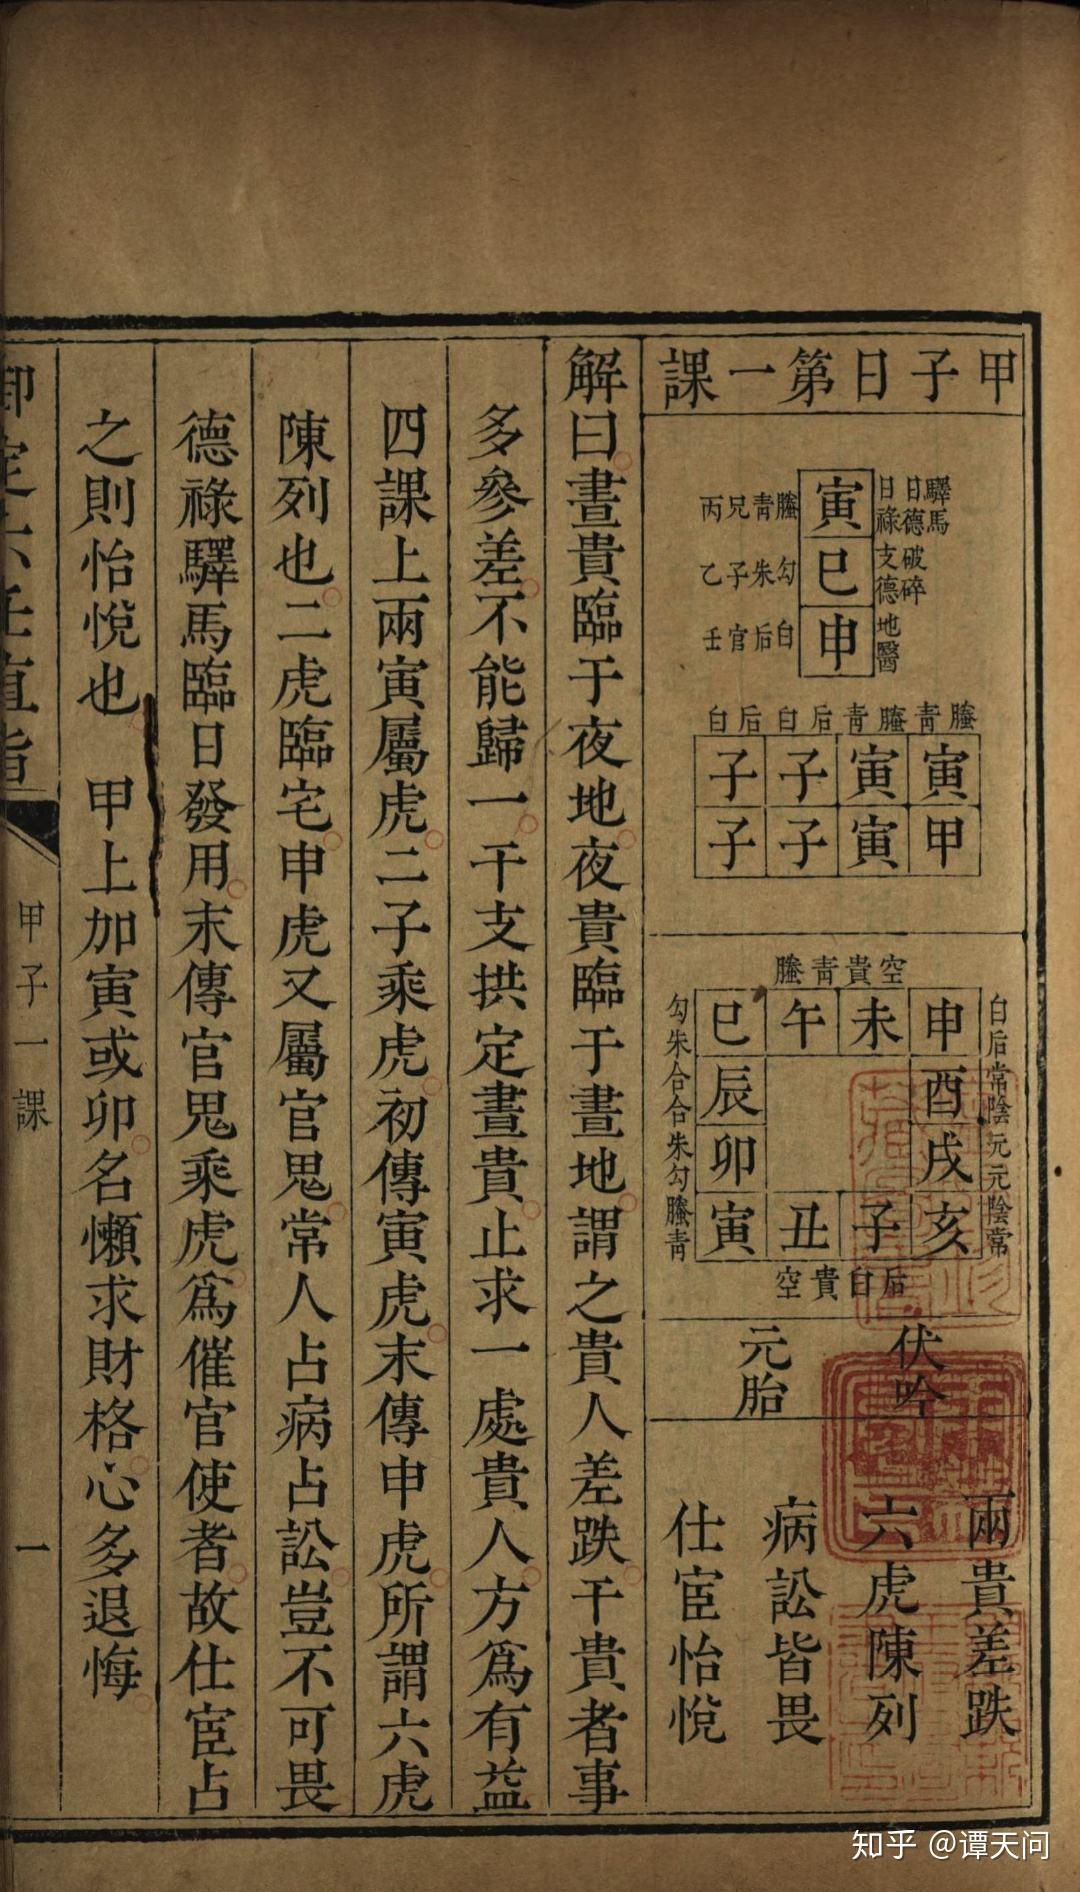 甲子日第一課
驛馬
日德
日祿
寅
螣青兄丙
破碎
支德
巳
勾朱子乙
地醫
申
白后官壬
螣青螣青后白后白
寅寅子子
甲寅子子
空貴青螣
申未午巳
酉辰
戌卯
亥子丑寅
白后常陰元元陰常
勾朱合合朱勾螣青
后白貴空
伏吟
元胎
兩貴差跌
六虎陳列
病訟皆畏
仕宦怡悅
解曰晝貴臨于夜地夜貴臨于晝地謂之貴人差跌干貴者事
多參差不能歸一干支拱定晝貴止求一處貴人方爲有益
四課上兩寅屬虎二子乘虎初傳寅虎末傳申虎所謂六虎
陳列也二虎臨宅申虎又屬官鬼常人占病占訟豈不可畏
德祿驛馬臨日發用末傳官鬼乘虎爲催官使者故仕宦占
之則怡悅也　甲上加寅或卯名懶求財格心多退悔
御定六壬直指
甲子一課
一
知乎 @谭天问